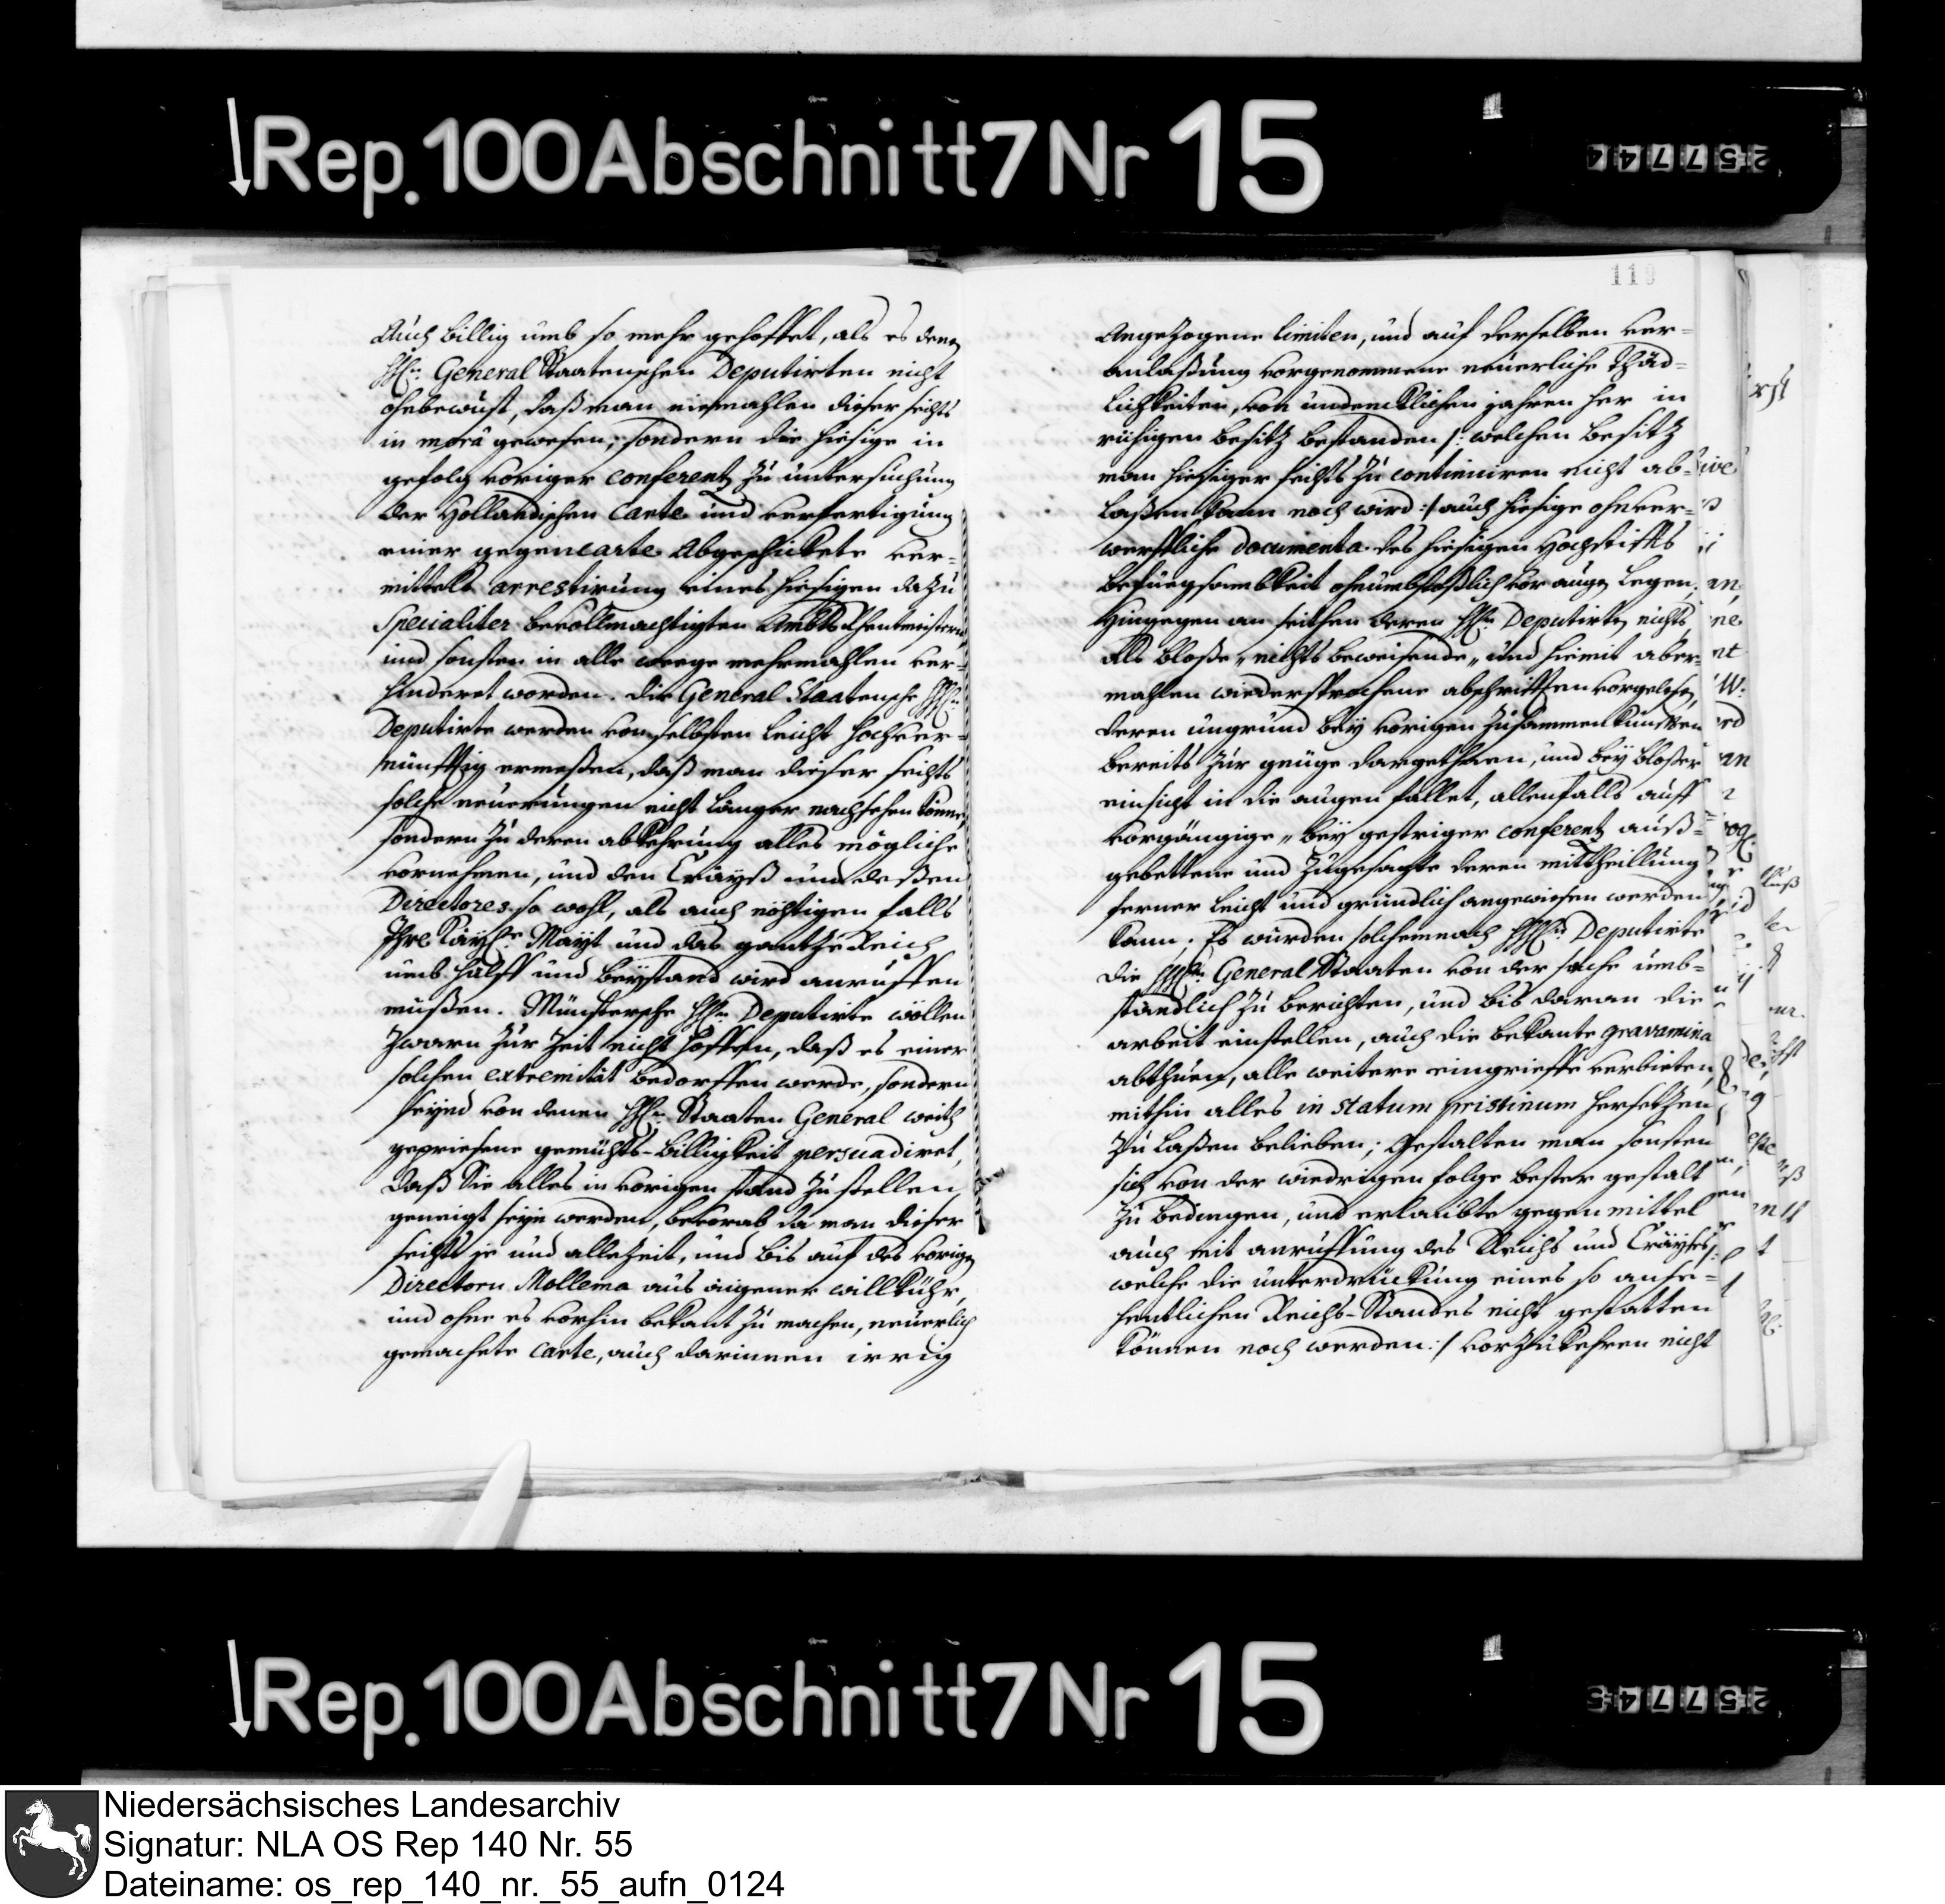 Rep. 100 Abschnitt 7 Nr 15
25774
118
Auch billig umb so mehr gehoffet, als es denen
HHn: General Staatenschen Deputirten nicht
ohnbewust, daß man niemahlen dieser seiths
in morâ gewesen; sondern die hiesige in
gefolg voriger conferentz zu untersuchung
der Hollandischen Carte und verfertigung
einer gegencarte Abgeschickete ver-
mittels arrestirung eines hiesigen dazu
Specialiter bevollmachtigten Ambts Rhentmeistern
und sonsten in alle weege mehrmahlen ver-
hinderet worden. die General Staatensche HHn:
Deputirte werden von selbsten leicht hochver-
nünfftig ermeßen, daß man dieser seiths
solche neuerungen nicht länger nachsehen könne,
sondern zu deren abkehrung alles mögliche
vornehmen, und den Crayß und deßen
Directores so wohl, als auch nöhtigen falls
Ihre Kayße Mayt und das gantze Reich
umb hülff und beystand wird anruffen
mußen. Münstersche HHn: Deputirte wöllen
zwarn zur zeit nicht hoffen, daß es einer
solchen extremität bedörffen werde, sondern
seynd von denen HHn: Staaten General weith
gepriesene gemühts-billigkeit persuadiret,
daß Sie alles in vorigen stand zu stellen
geneigt seyn werden, bevorab da man dieser
seiths je und allezeit, und bis auf des vorigen
Directorn Mollema aus aigener willkühr,
und ohne es vorhin bekant zu machen, neuerlich
gemachete Carte, auch darinnen irrig
Angezogene limiten, und auf derselben ver-
anlaßung vorgenommene neuerliche Thäd-
lichkeiten, von undencklichen jahren her in
rühigen besitz bestanden /: welchen besitz
man hiesiger seiths zu continuiren nicht ab-
laßen kann noch wird :/ auch hiesige ohnver-
werffliche documenta des hiesigen Hochstiffts
befuegsambkeit ohnumbstoßlich vor augen legen;
Hingegen an seithen deren HHn: Deputirten nichts
als bloße „nichts beweisende„ und hiemit aber-
mahlen wiedersprochene abschrifften vorgelesen,
deren ungrund bey vorigen zusammenkunfften
bereits zur genüge dargethaen, und bey bloßer
einsicht in die augen fallet, allenfalls auff
vorgängige „ bey gestriger conferentz auß-
gebettene und zugesagte deren mittheillung
ferner leicht und gründlich angewiesen werden
kann. Es würden solchemnach HHn: Deputirte
die HHn: General Staaten von der sache umb-
ständlich zu berichten, und bis daran die
arbeit einstellen, auch die bekante gravamina
abthuen, alle weitere eingrieffe verbieten,
mithin alles in statum pristinum hersetzen
zu laßen belieben; Gestalten man sonsten
sich von der wiedrigen folge bester gestalt
zu bedingen, und erlaubte gegenmittel
auch mit anruffung des Reichs und Crayses /:
welche die unterdrückung eines so anse-
hentlichen Reichs-Standes nicht gestatten
können noch werden :/ vorzukehren nicht
Rep. 100 Abschnitt 7 Nr 15
25774
Niedersächsisches Landesarchiv
Signatur: NLA OS Rep 140 Nr. 55
Dateiname: os_rep_140_nr._55_aufn_0124